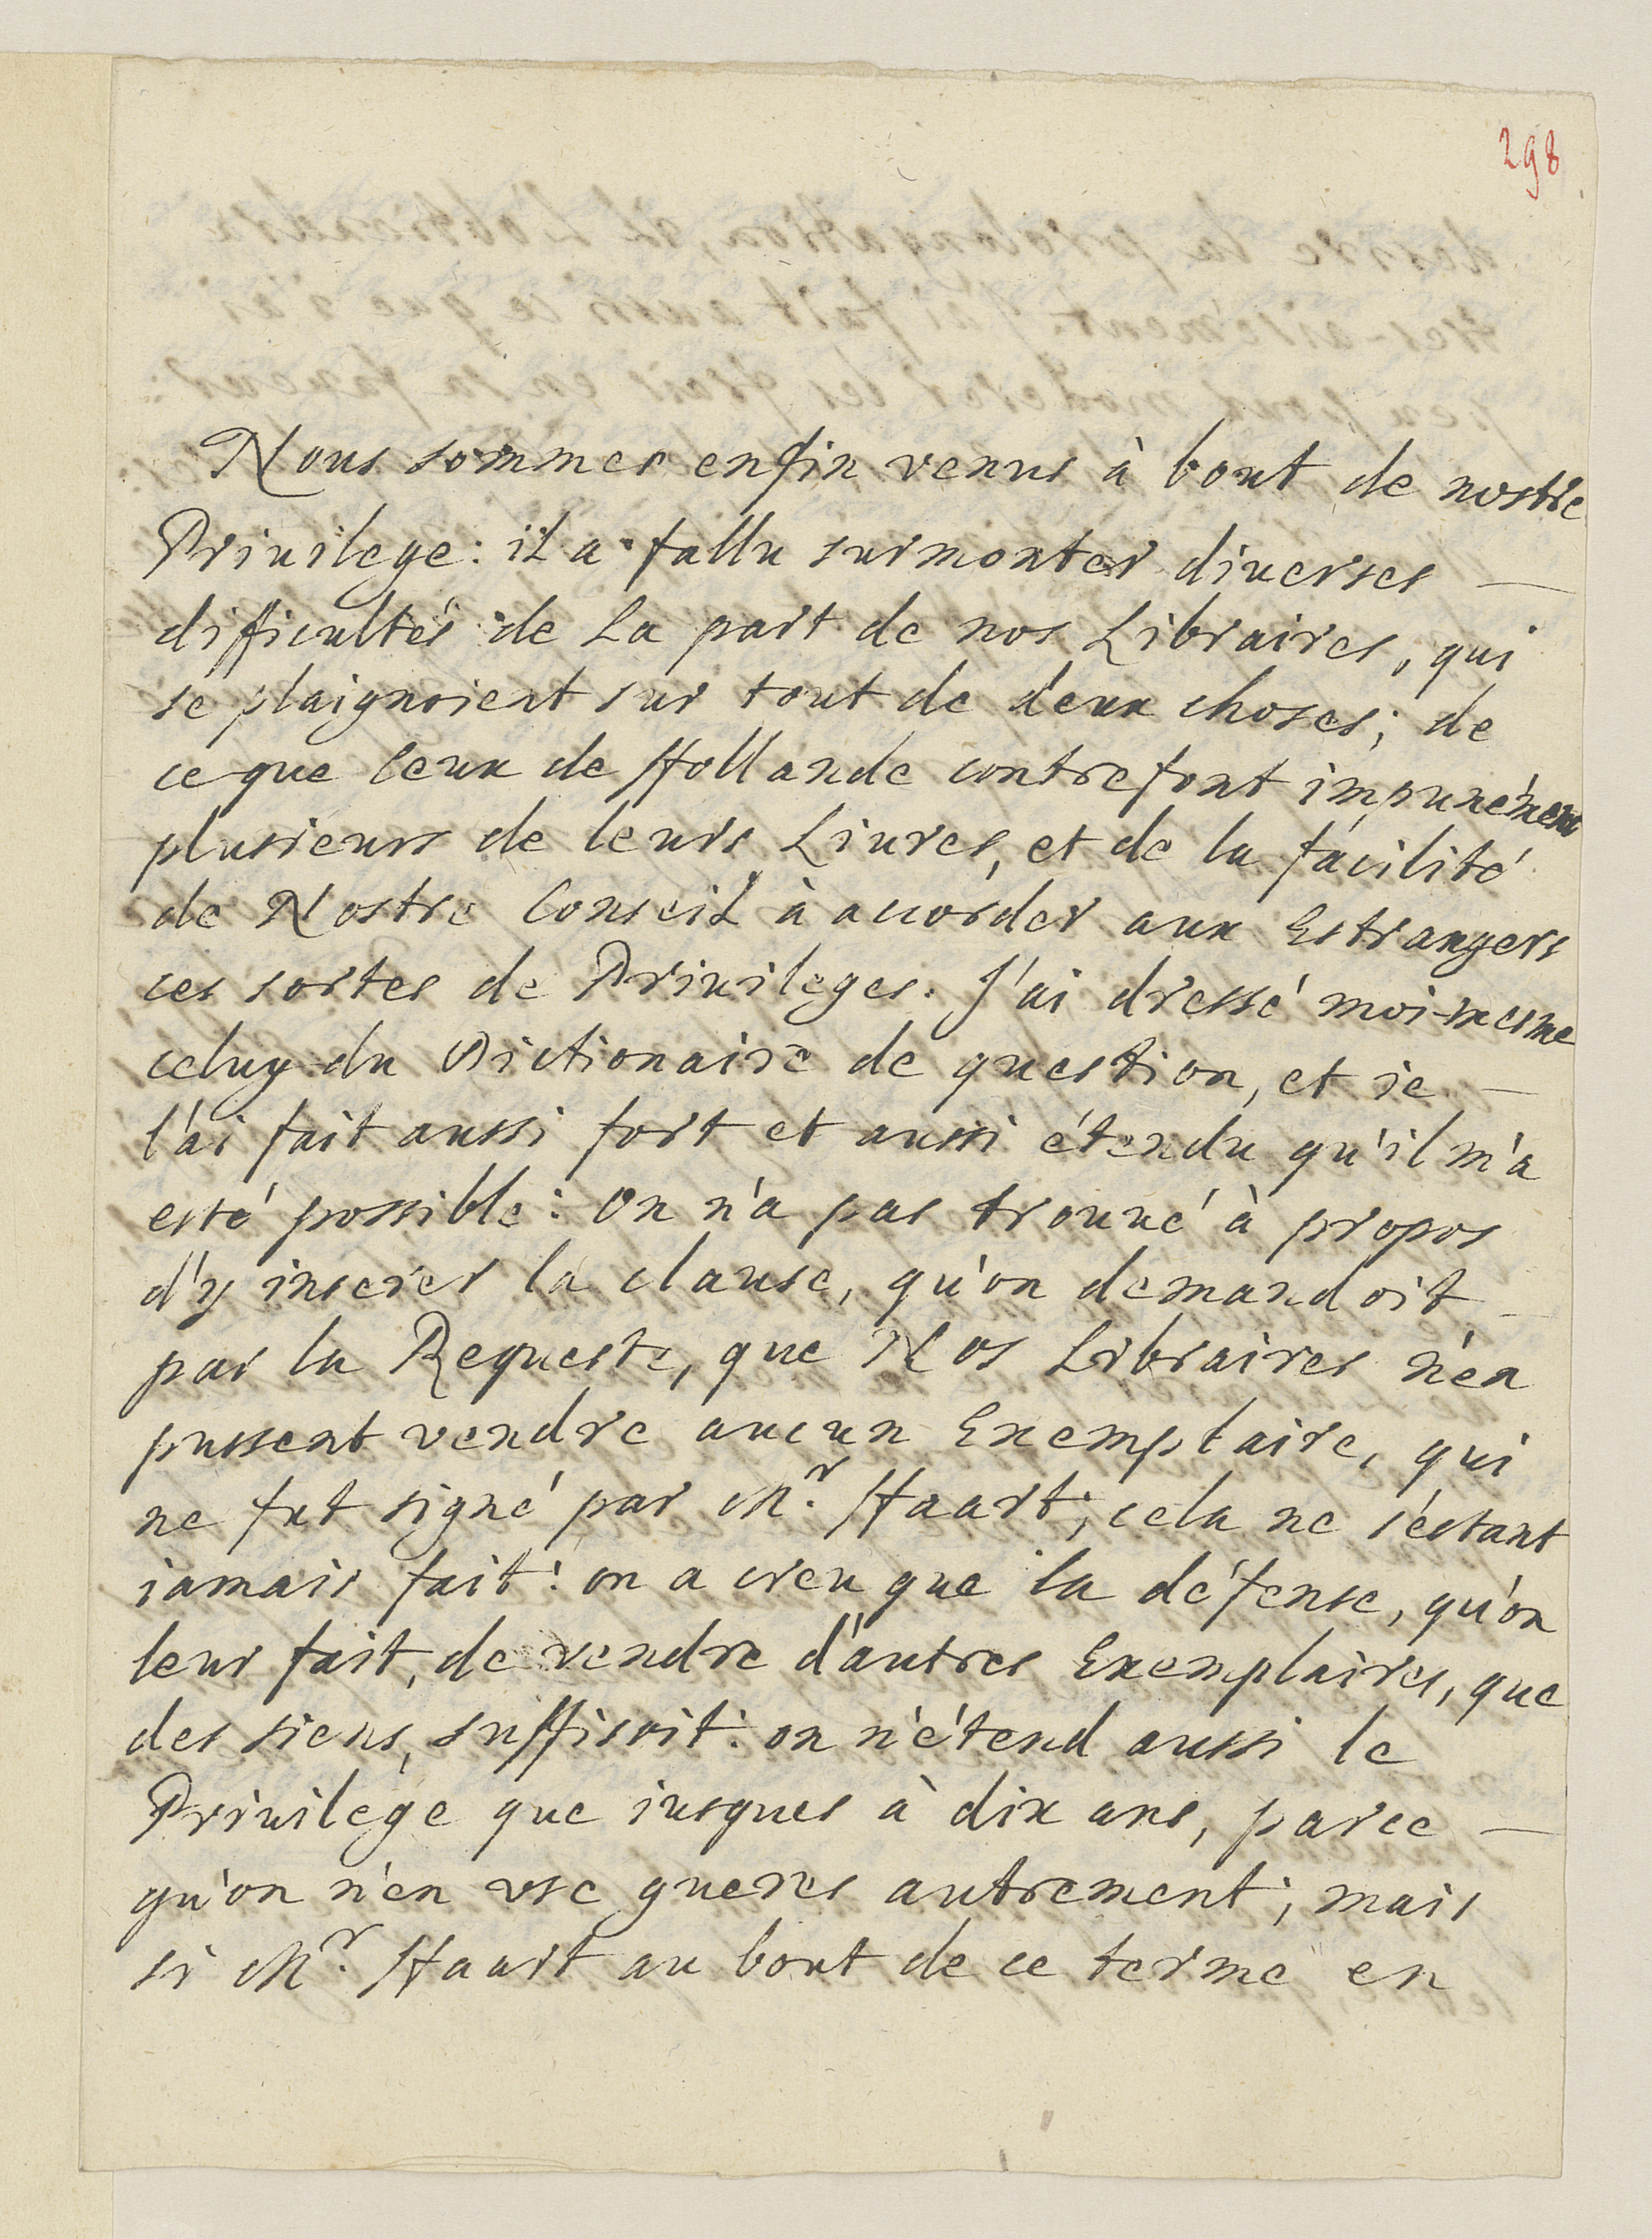 298
Nous sommes enfin venus à bout de nostre
Priuilege: il a fallu surmonter diuerses —
difficultés de La part de nos Libraires, qui
se plaignoient sur tout de deux choses; de
ce que Ceux de Hollande contrefont impunément
plusieurs de leurs Liures, et de la facilité
de Nostre Conseil à accorder aux Estrangers
ces sortes de Priuileges. J'ai dressé moi-mesme
celuy du Dictionaire de question, et ie —
l'ai fait aussi fort et aussi étendu qu'il m'a
esté possible: On n'a pas trouué à propos
d'y inserer la clause, qu'on demandoit —
par la Requeste, que Nos Libraires n'en
pussent vendre aucun Exemplaire, qui
ne fut signé par Mr. Huart; cela ne s'estant
iamais fait: on a creu que la défense, qu'on
leur fait, de vendre d'autres Exemplaires, que
des siens, suffisoit: on n'étend aussi le
Priuilege que iusques à dix ans, parce —
qu'on n'en vse gueres autrement; mais
si Mr. Huart au bout de ce terme en